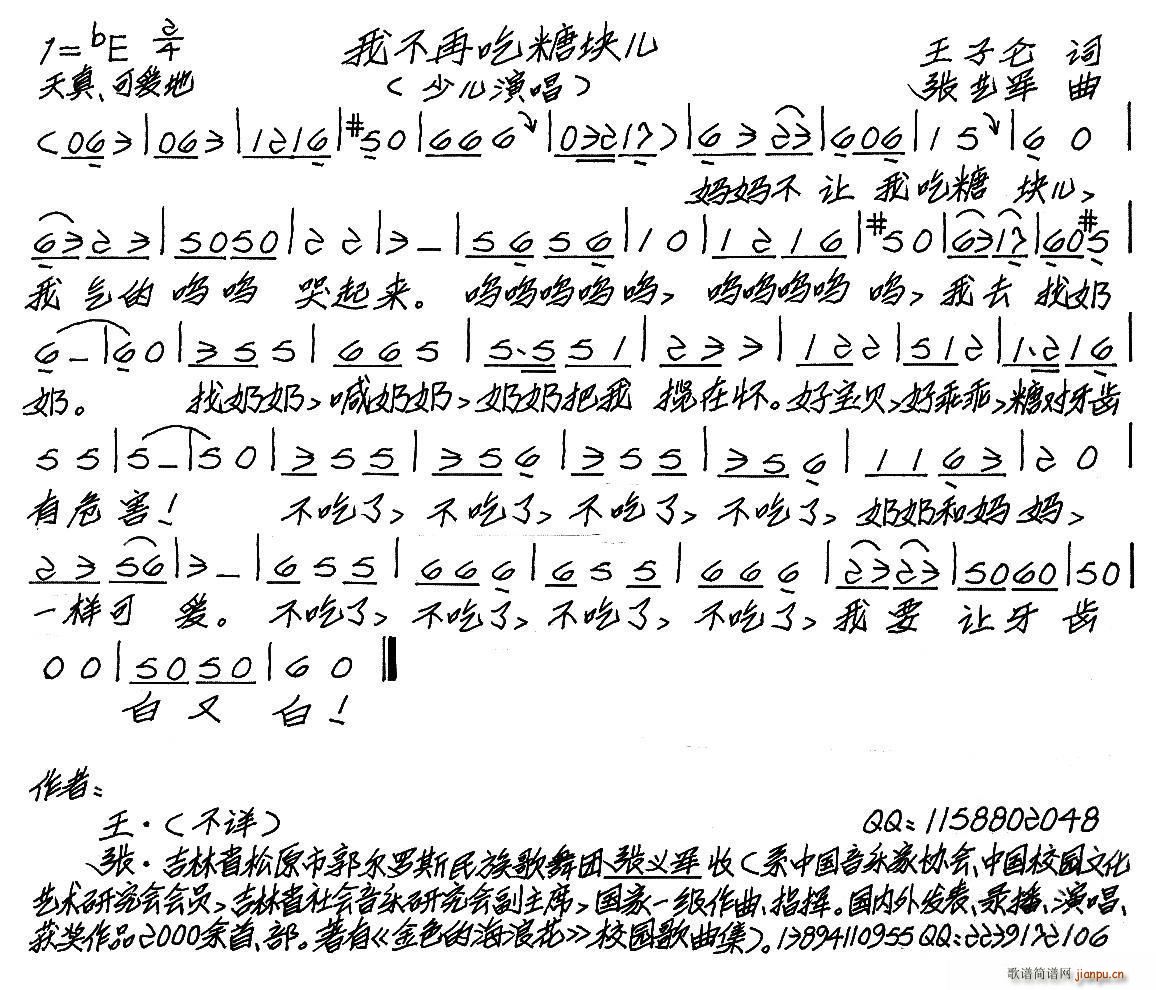 1=bE 2/4 我不再吃糖块儿 王子仑 词
天真、可爱地 (少儿演唱) 张艺军 曲
(063|063|1216|#50|666|03217)|6323|606|15|60|
妈妈不让我吃糖块儿,
6323|5050|22|3-|5656|10|1216|#50|6317|60#5|
我气的呜呜哭起来。呜呜呜呜呜,呜呜呜呜呜,我去找奶
6-|60|355|665|5·551|233|122|512|1·216|
奶。找奶奶,喊奶奶,奶奶把我搅在怀。好宝贝,好乖乖,糖对牙齿
55|5-|50|355|356|355|356|1163|20|
有危害!不吃了,不吃了,不吃了,不吃了,奶奶和妈妈,
2356|3-|655|666|655|666|2323|5060|50|
一样可爱。不吃了,不吃了,不吃了,不吃了,我要让牙齿
00|5050|60||
白又白!
作者:
王·(不详) QQ:1158802048
张·吉林省松原市郭尔罗斯民族歌舞团张义军收(系中国音乐家协会、中国校园文化
艺术研究会会员,吉林省社会音乐研究会副主席,国家一级作曲、指挥。国内外发表、录播、演唱、
获奖作品2000余首、部。著有《金色的海浪花》校园歌曲集)。13894110955 QQ:2239172106
歌谱简谱网 jianpu.cn